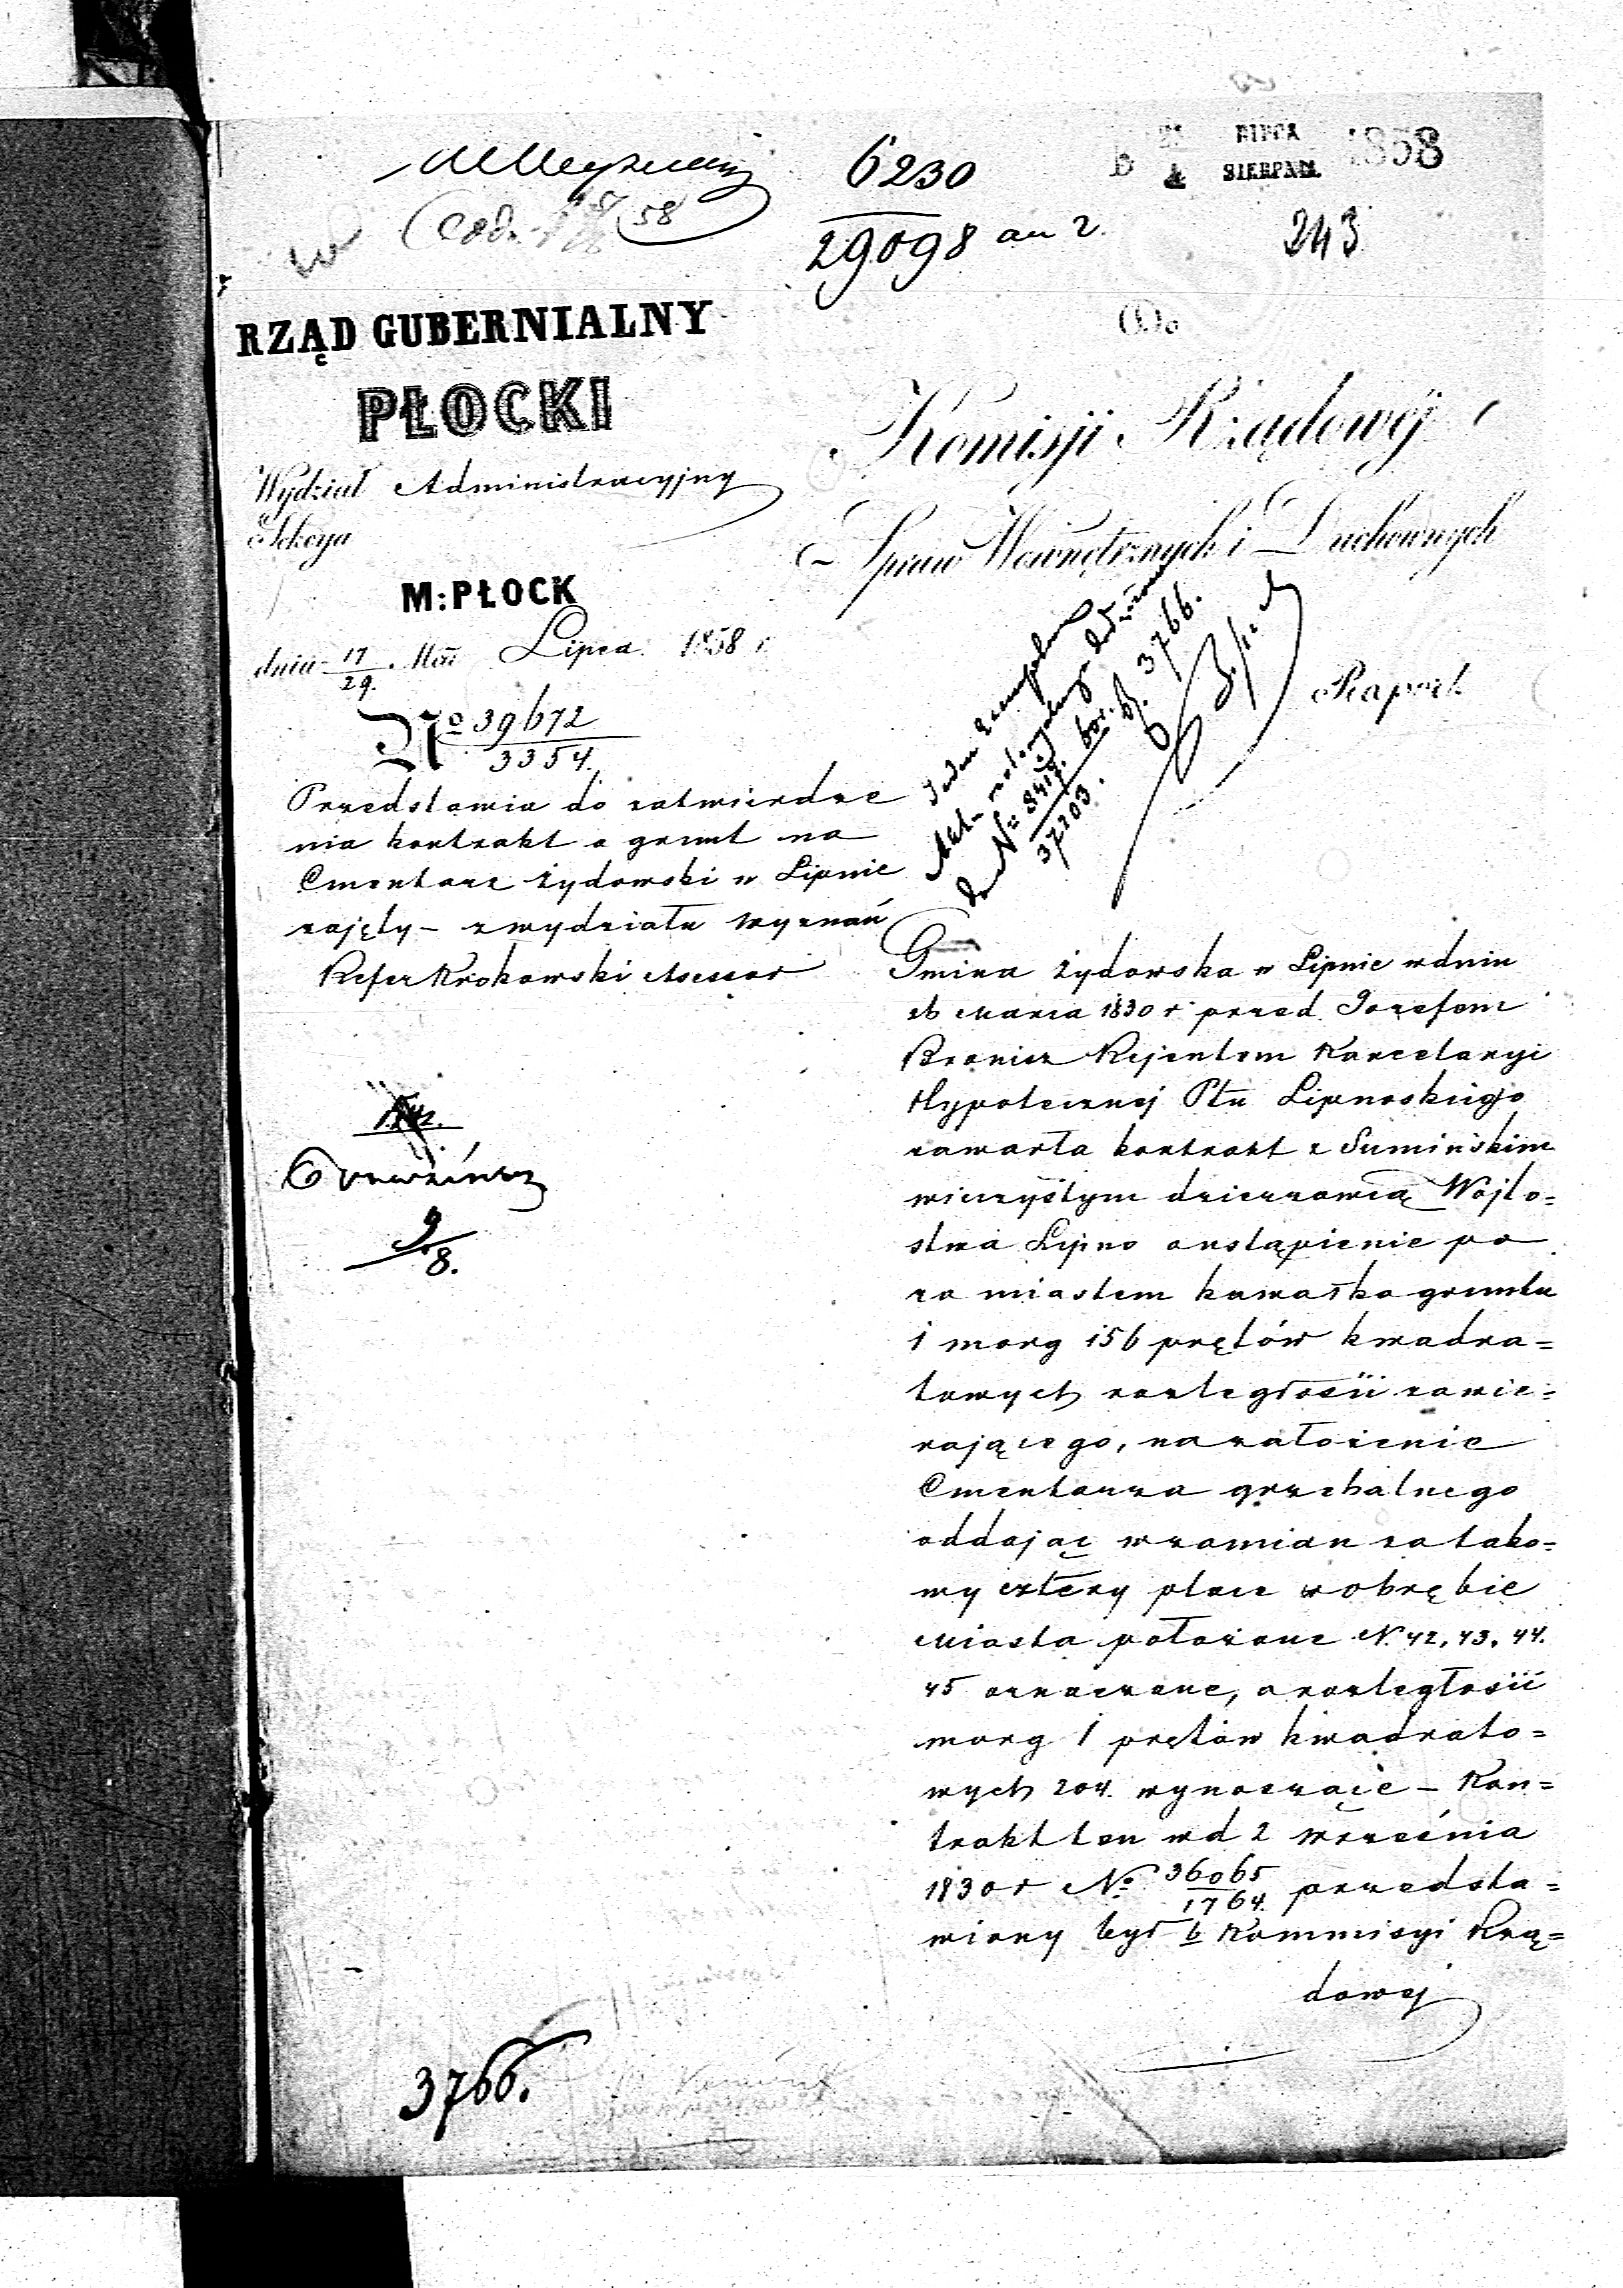 6230
29098 an 2.
LIPCA
SIERPNIA
1858
243
RZĄD GUBERNIALNY
PŁOCKI
Wydział Administracyjny
Sekcya
M: PŁOCK
dnia 17/29. Lipca 1858 r
No 39672
3354.
Przedstawia do zatwierdze
nia kontrakt o grunt na
Cmentarz żydowski w Lipnie
zajęty – z wydziału wyznań
Refer Krokowski Assesor
9/8.
3766.
Do
Komisji Rządowéj
Spraw Wewnętrznych i Duchownych
Jeden
do No 8419.
37203.
3766.
Raport
Gmina żydowska w Lipnie w dniu
Marca 1830 r przed Jozefem
Bronisz Rejentem Kancelaryi
Hypotecznej Ptu Lipnoskiego
zawarła kontrakt z Sumińskim
wieczystym dzierzawcą Wojto=
stwa Lipno o ustąpienie po
za miastem kawałka gruntu
1 morg 156 prętów kwadra=
towych rozległości zawie=
rającego, na założenie
Cmentarza grzebalnego
oddając w zamian za tako=
wy cztery place w obrębie
Miasta położone N. 42, 43, 44.
45 oznaczone, a rozległości
morg 1 prętów kwadrato=
wych 204. wynoszące – Kon=
trakt ten w d 2 września
1830 r No 36065/1764. przedsta=
wiony był b Kommisyi Rzą=
dowej